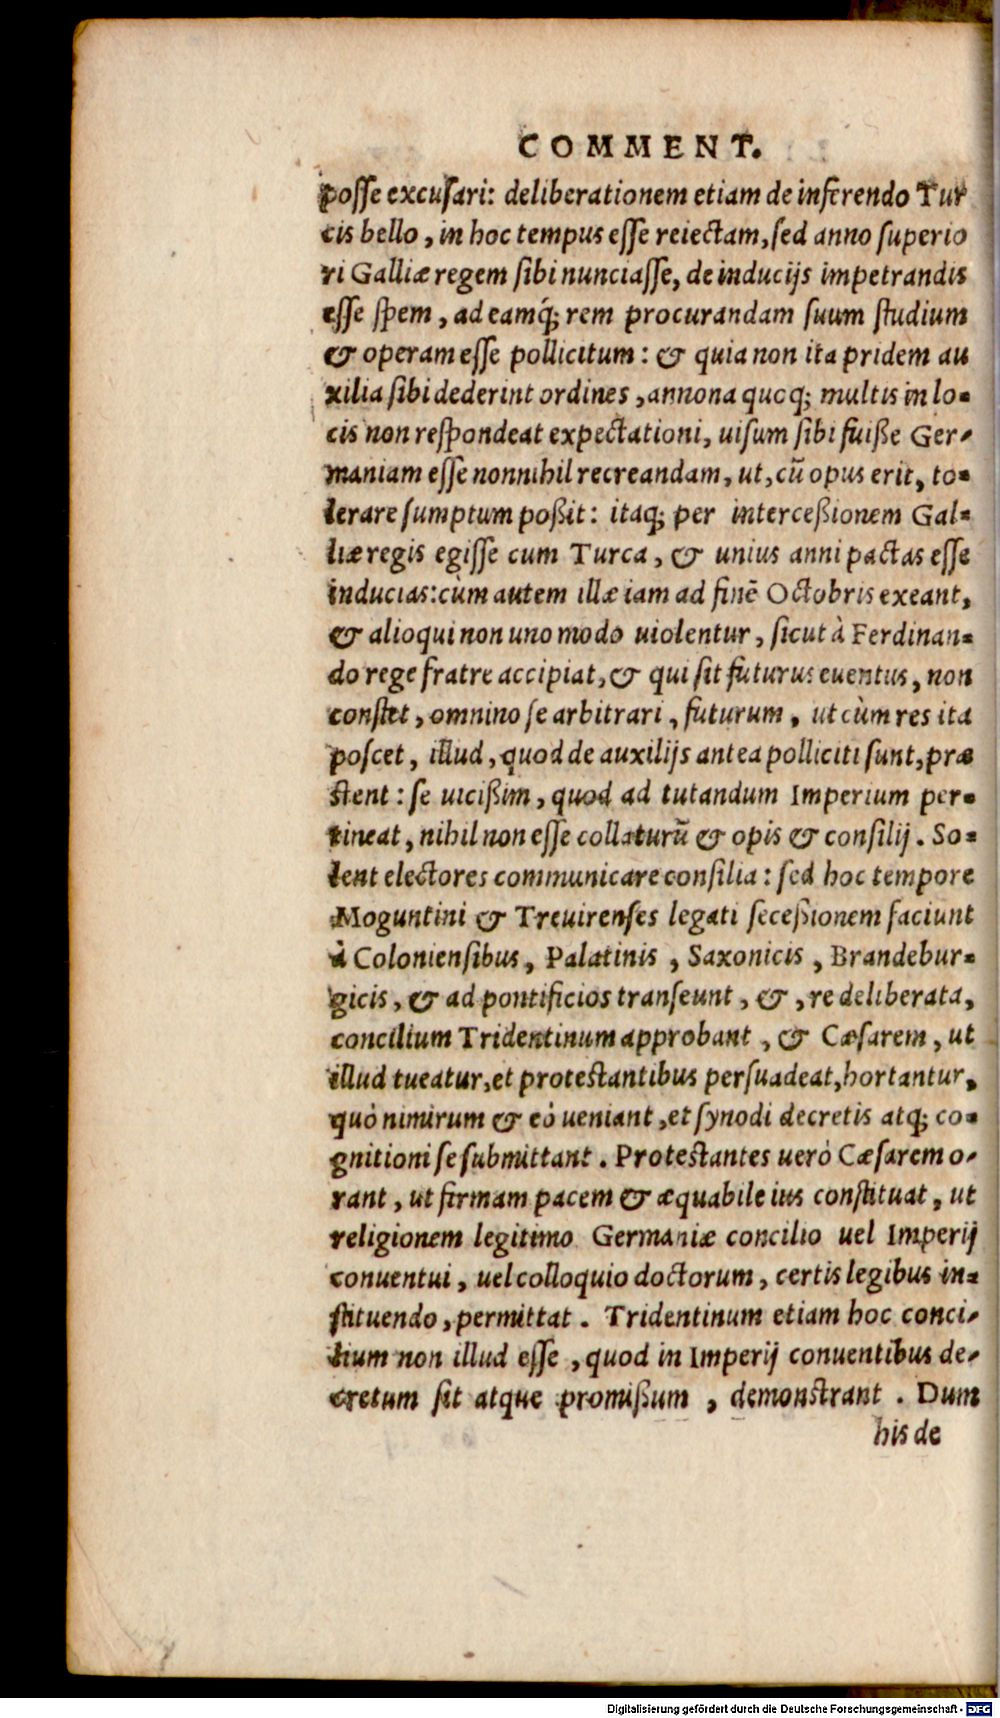 COMMENT.
posse excusari: deliberationem etiam de inferendo Tur
cis bello, in hoc tempus esse reiectam, sed anno superio
ri Galliæ regem sibi nunciasse, de inducijs impetrandis
esse spem, ad eamq́; rem procurandam suum studium
& operam esse pollicitum: & quia non ita pridem au
xilia sibi dederint ordines, annona quoq; multis in lo-
cis non respondeat expectationi, uisum sibi fuiße Ger-
maniam esse nonnihil recreandam, ut, cū opus erit, to-
lerare sumptum poßit: itaq; per interceßionem Gal-
liæ regis egisse cum Turca, & unius anni pactas esse
inducias: cùm autem illæ iam ad finē Octobris exeant,
& alioqui non uno modo uiolentur, sicut à Ferdinan-
do rege fratre accipiat, & qui sit futurus euentus, non
constet, omnino se arbitrari, futurum, ut cùm res ita
poscet, illud, quod de auxilijs antea polliciti sunt, præ
stent: se uicißim, quod ad tutandum Imperium per-
tineat, nihil non esse collaturū & opis & consilij. So-
lent electores communicare consilia: sed hoc tempore
Moguntini & Treuirenses legati seceßionem faciunt
à Coloniensibus, Palatinis, Saxonicis, Brandebur-
gicis, & ad pontificios transeunt, &, re deliberata,
concilium Tridentinum approbant, & Cæsarem, ut
illud tueatur, et protestantibus persuadeat, hortantur,
quò nimirum & eò ueniant, et synodi decretis atq; co-
gnitioni se submittant. Protestantes uerò Cæsarem o-
rant, ut firmam pacem & æquabile ius constituat, ut
religionem legitimo Germaniæ concilio uel Imperij
conuentui, uel colloquio doctorum, certis legibus in-
stituendo, permittat. Tridentinum etiam hoc conci-
lium non illud esse, quod in Imperij conuentibus de-
cretum sit atque promißum, demonstrant. Dum
his de
Digitalisierung gefördert durch die Deutsche Forschungsgemeinschaft - DFG